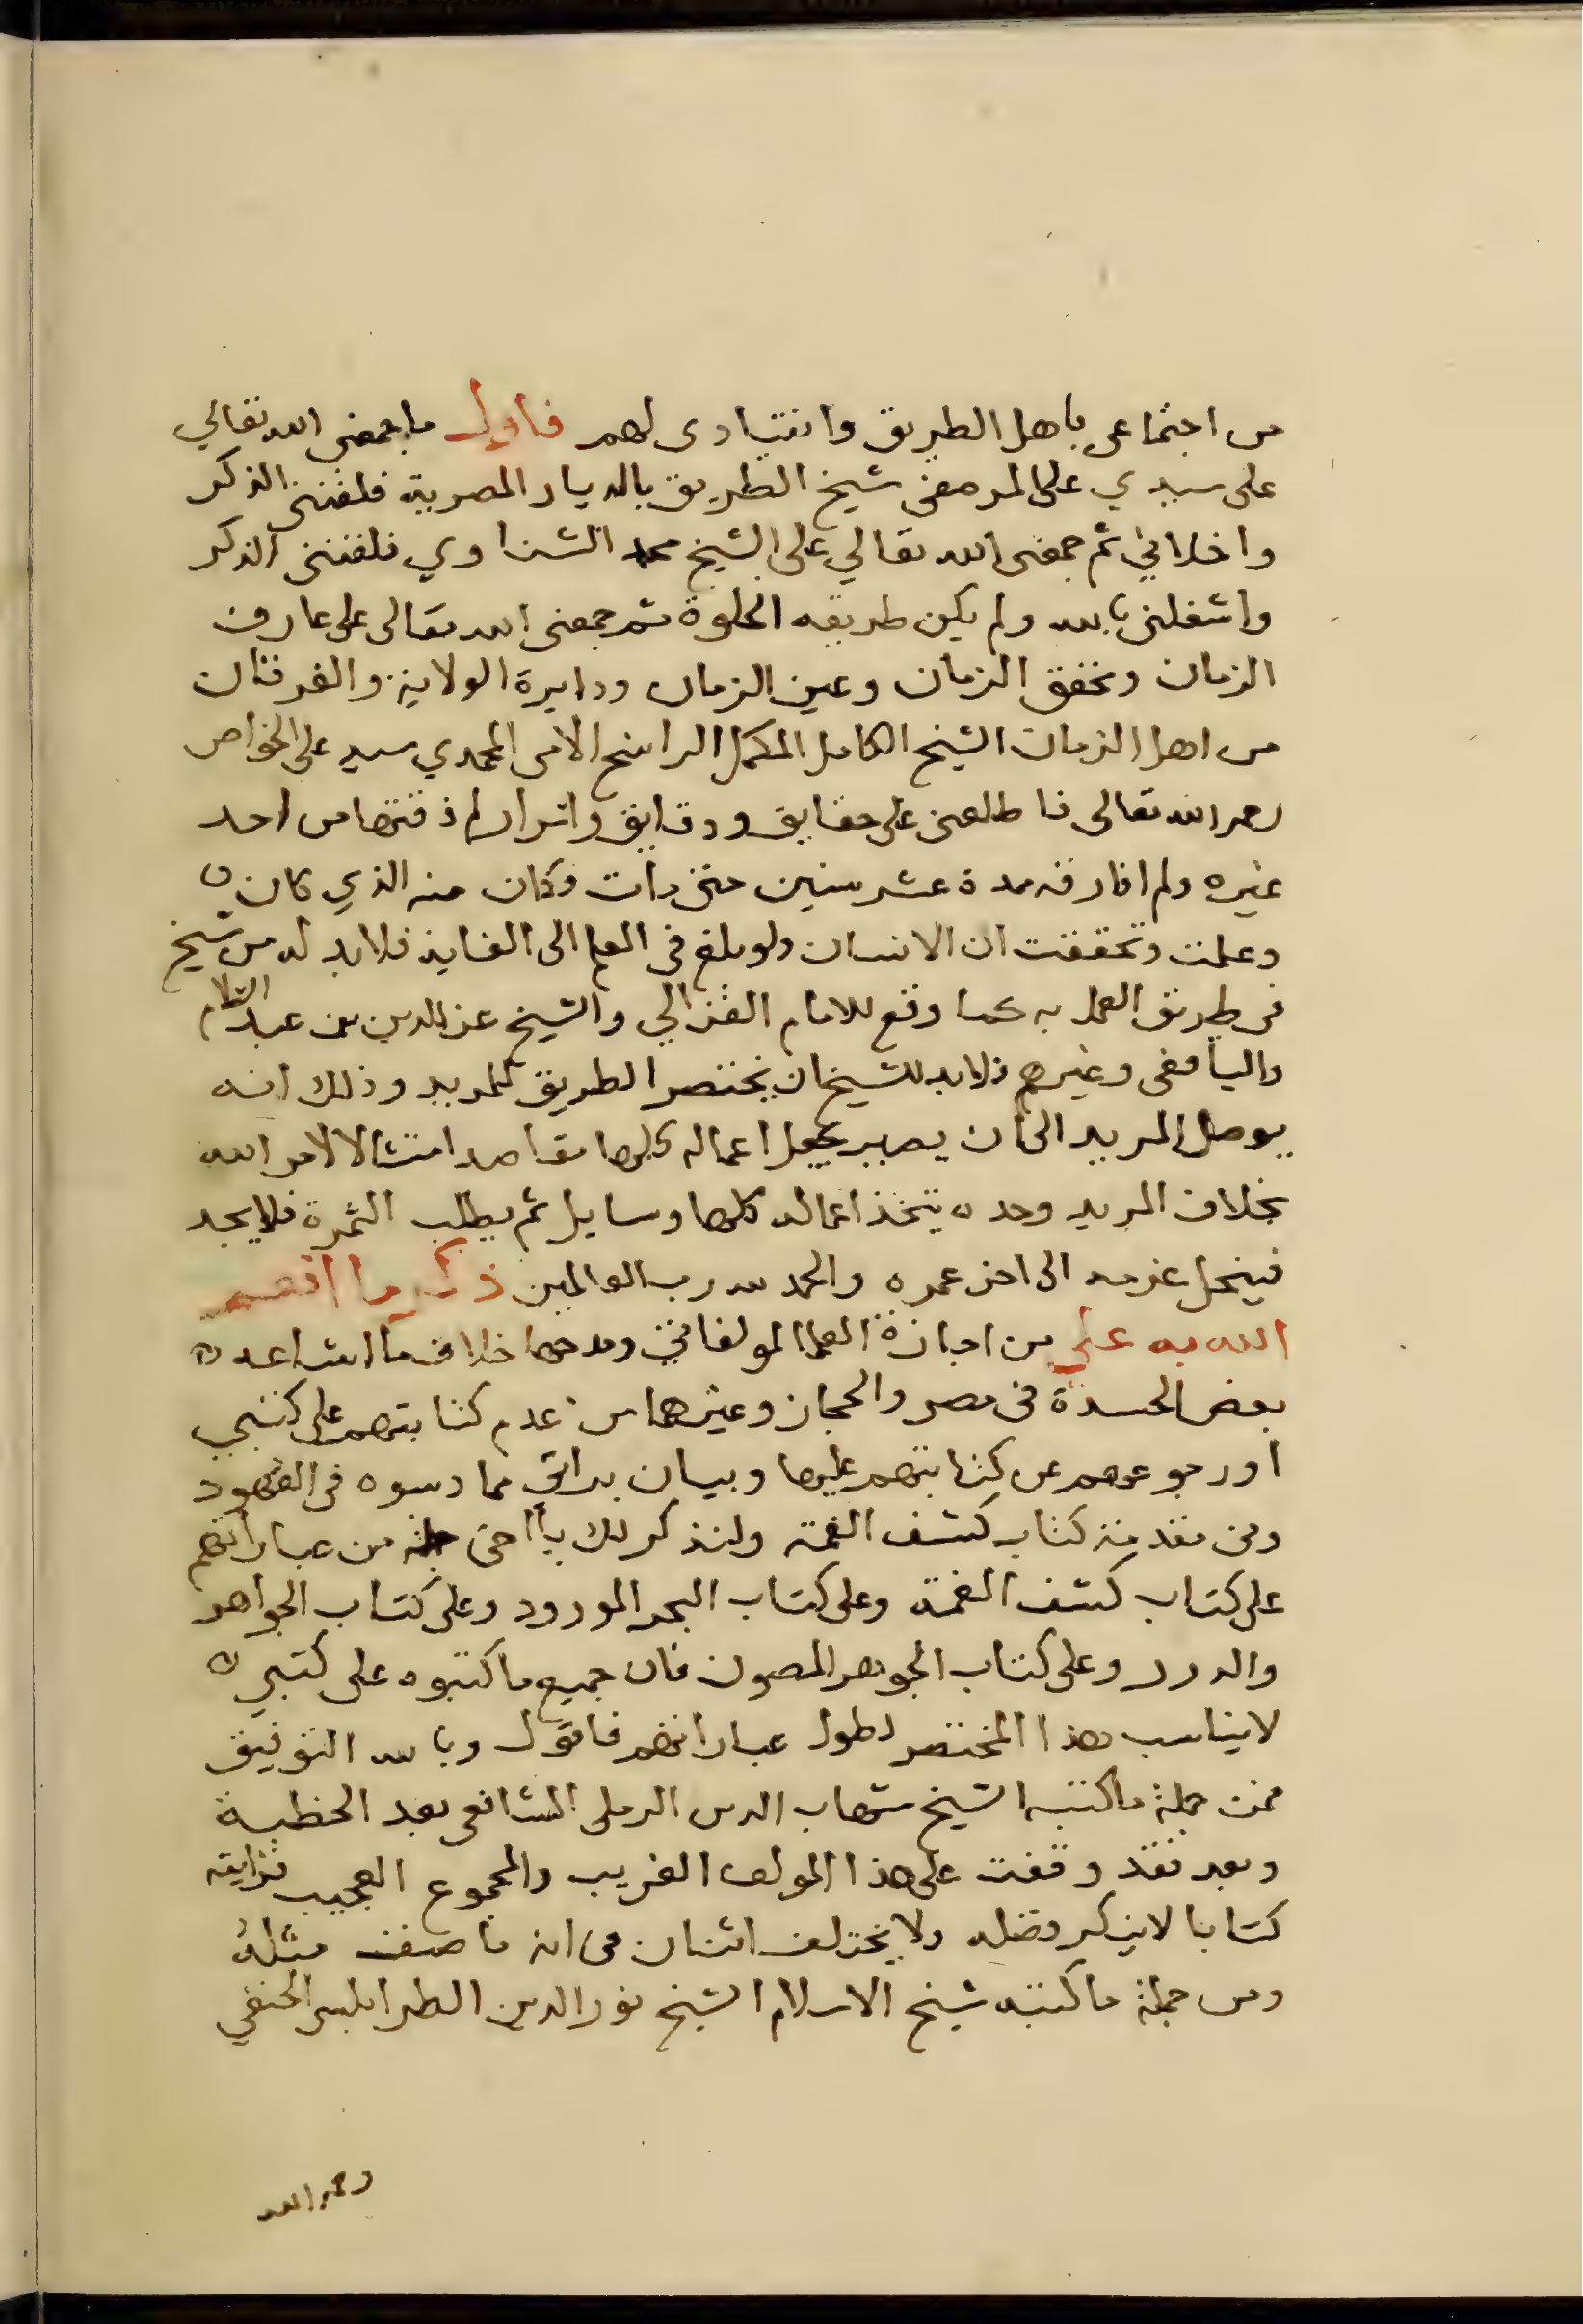 من اجتماعي باهل الطريق وانقيادى لهم فاول ما جمعنى الله تعالي
على سيدي على المرصفى شيخ الطريق بالديار المصرية فلقننى الذكر
واخلاني ثم جمعنى الله تعالي على الشيخ محمد الشناوي فلقننى الذكر
واشغلنى بالله ولم يكن طريقه الخلوة ثم جمعنى الله تعالى على عارف
الزمان ومحقق الزمان وعين الزمان ودايرة الولاية والفرقان
من اهل الزمان الشيخ الكامل المكمل الراسخ الامى المحمدي سيد على الخواص
رحمه الله تعالى فاطلعنى على حقايق ودقايق واسرار لم اذقتها من احد
غيره ولم افارقه مدة عشر سنين حتى مات وكان منه الذي كان
وعلمت وتحققت ان الانسان ولو بلغ فى العلم الى الغاية فلابد له من شيخ
فى طريق العمل به كما وقع للامام الغزالي والشيخ عز الدين بن عبد السلام
واليافعى وغيرهم فلابد للشيخ ان يختصر الطريق للمريد وذلك انه
يوصل المريد الى ان يصير يجعل اعماله كلها مقاصد امتثالا لامر الله
بخلاف المريد وحده يتخذ اعماله كلها وسايل ثم يطلب الثمرة فلا يجد
فينحل عزمه الى اخر عمره والحمد لله رب العالمين ذكر ما انعم
الله به على من اجازة العلما لمولفاتي ومدحها خلاف ما اشاعه
بعض الحسدة فى مصر والحجاز وغيرهما من عدم كتابتهم على كتبي
او رجوعهم عن كتابتهم عليها وبيان براتى مما دسوه فى العهود
وفى مقدمة كتاب كشف الغمة ولنذكر لك يا اخى جملة من عباراتهم
على كتاب كشف الغمة وعلى كتاب البحر المورود وعلى كتاب الجواهر
والدرر وعلى كتاب الجوهر المصون فان جميع ما كتبوه على كتبي
لايناسب هذا المختصر لطول عباراتهم فاقول وبالله التوفيق
فمن جملة ما كتبه الشيخ شهاب الدين الرملى الشافعى بعد الخطبة
وبعد فقد وقفت على هذا المولف الغريب والمجموع العجيب فرايته
كتابا لاينكر فضله ولا يختلف اثنان فى انه ما صنف مثله
ومن جملة ما كتبه شيخ الاسلام الشيخ نور الدين الطرابلسى الحنفي
رحمه الله